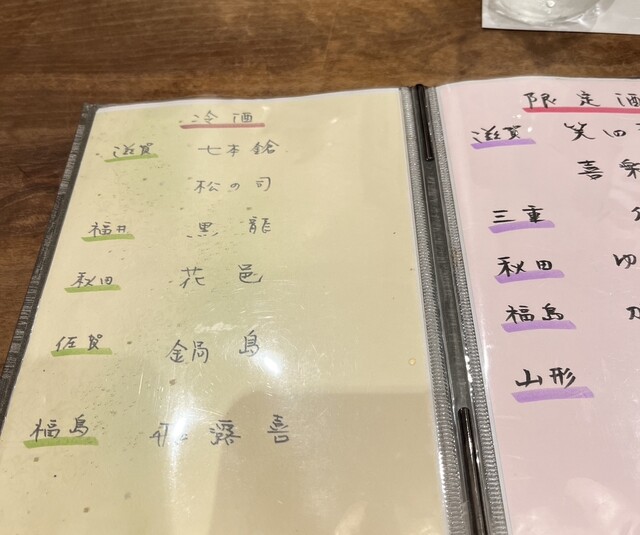 冷酒
滋賀 七本鎗
松の司
福井 黒龍
秋田 花邑
佐賀 鍋島
福島 飛露喜
限定酒
滋賀 笑四
喜
三重
秋田 ゆ
福島
山形